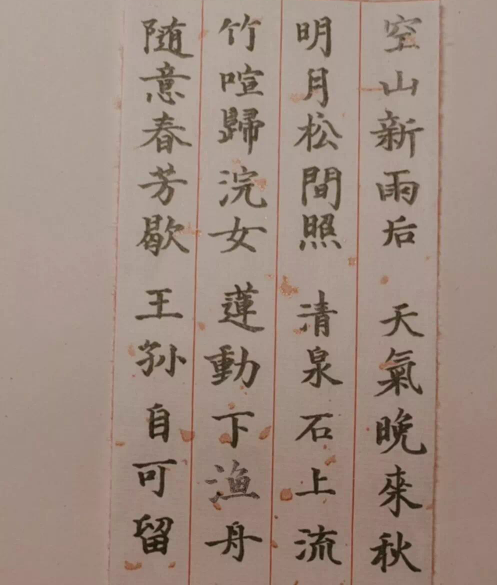 空山新雨后 天氣晚来秋
明月松間照 清泉石上流
竹喧歸浣女 蓮動下渔舟
随意春芳歇 王孙自可留